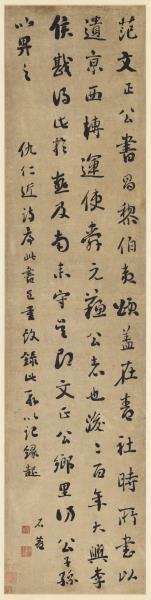 范文正公書昌黎伯夷頌蓋在青社時所書以
遺京西轉運使舜元蘇公者也後二百年大興李
侯戡得此於燕及南來守吳即文正公鄉里仍公子孫
以畀之
仇仁近詩序此書至重故錄此段以記緣起
石菴